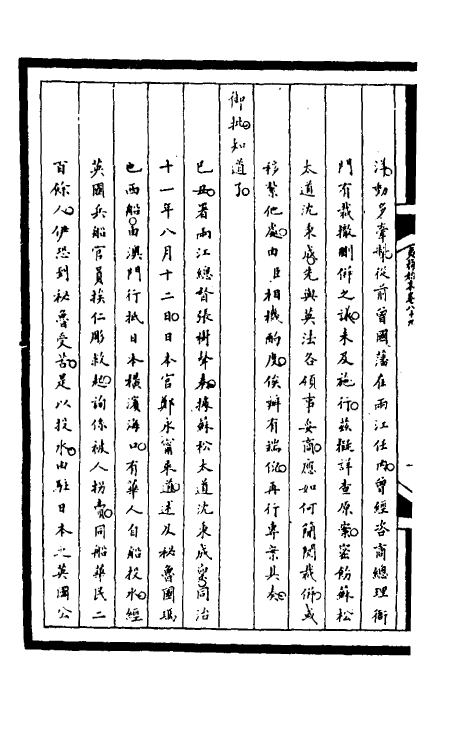 洋動多牽制從前曾國藩在兩江任內曾經咨商總理衙
門有裁撤刪併之議未及施行茲擬詳查原案密飭蘇松
太道沈秉成先與英法各領事妥商應如何簡閱裁併或
移紮他處由臣相機酌度俟辦有端倪再行專案具奏
御批知道了
己丑署兩江總督張樹聲奏據蘇松太道沈秉成稟同治
十一年八月十二日日本官鄭永甯來道述及秘魯國瑪
也西船由澳門行抵日本橫濱海口有華人自船投水經
英國兵船官員挨仁彫救起詢係被人拐賣同船華民二
百餘人伊恐到秘魯受苦是以投水由駐日本之英國公